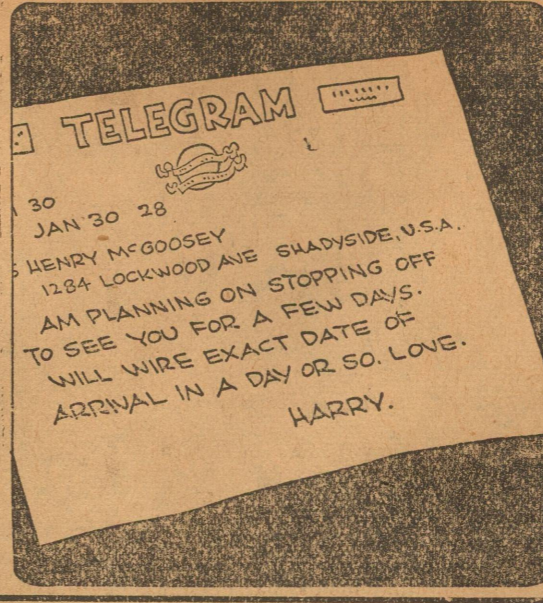 TELEGRAM
30
JAN 30 28
S HENRY McGOOSEY
1284 LOCKWOOD AVE SHADYSIDE, U.S.A.
AM PLANNING ON STOPPING OFF
TO SEE YOU FOR A FEW DAYS.
WILL WIRE EXACT DATE OF
ARRIVAL IN A DAY OR SO. LOVE.
HARRY.